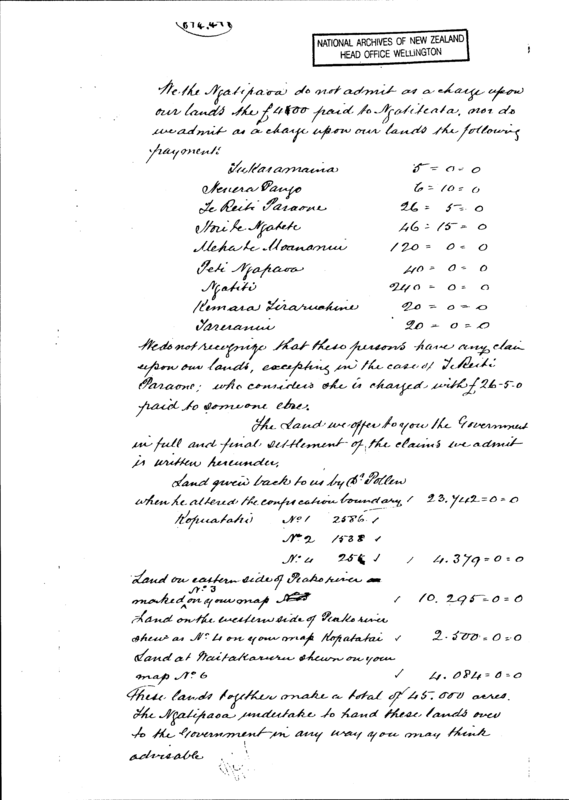 874.478
NATIONAL ARCHIVES OF NEW ZEALAND
HEAD OFFICE WELLINGTON
We the Ngatipaoa do not admit as a charge upon
our lands the £4100 paid to Ngatiteata, nor do
we admit as a charge upon our lands the following
payment:
Tukaramaina 5 = 0 = 0
Nenera Pango 6 = 10 = 0
Te Reiti Paraone 26 = 5 = 0
Hori te Ngatete 46 = 15 = 0
Meha te Moananui 120 = 0 = 0
Peti Ngapaoa 40 = 0 = 0
Ngatiti 240 = 0 = 0
Kemara Tiraruahine 20 = 0 = 0
Tareranui 20 = 0 = 0
We do not recognize that these persons have any claim
upon our lands, excepting in the case of Te Reiti
Paraone; who considers she is charged with £26-5-0
paid to someone else.
The Land we offer to you the Government
in full and final settlement of the claims we admit
is written hereunder.
Land given back to us by Dr Pollen
when he altered the confiscation boundary / 23.742=0=0
Kopuatahi No 1 2586 /
No 2 1538 /
No 4 255 / / 4.379=0=0
Land on eastern side of Piako river
marked No 3 on your map / 10.295=0=0
Land on the western side of Piako river
shewn as No 4 on your map Kopatatai / 2.500=0=0
Land at Waitakaruru shewn on your
map No 6 / 4.084=0=0
These lands together make a total of 45.000 acres.
The Ngatipaoa undertake to hand these lands over
to the Government in any way you may think
advisable